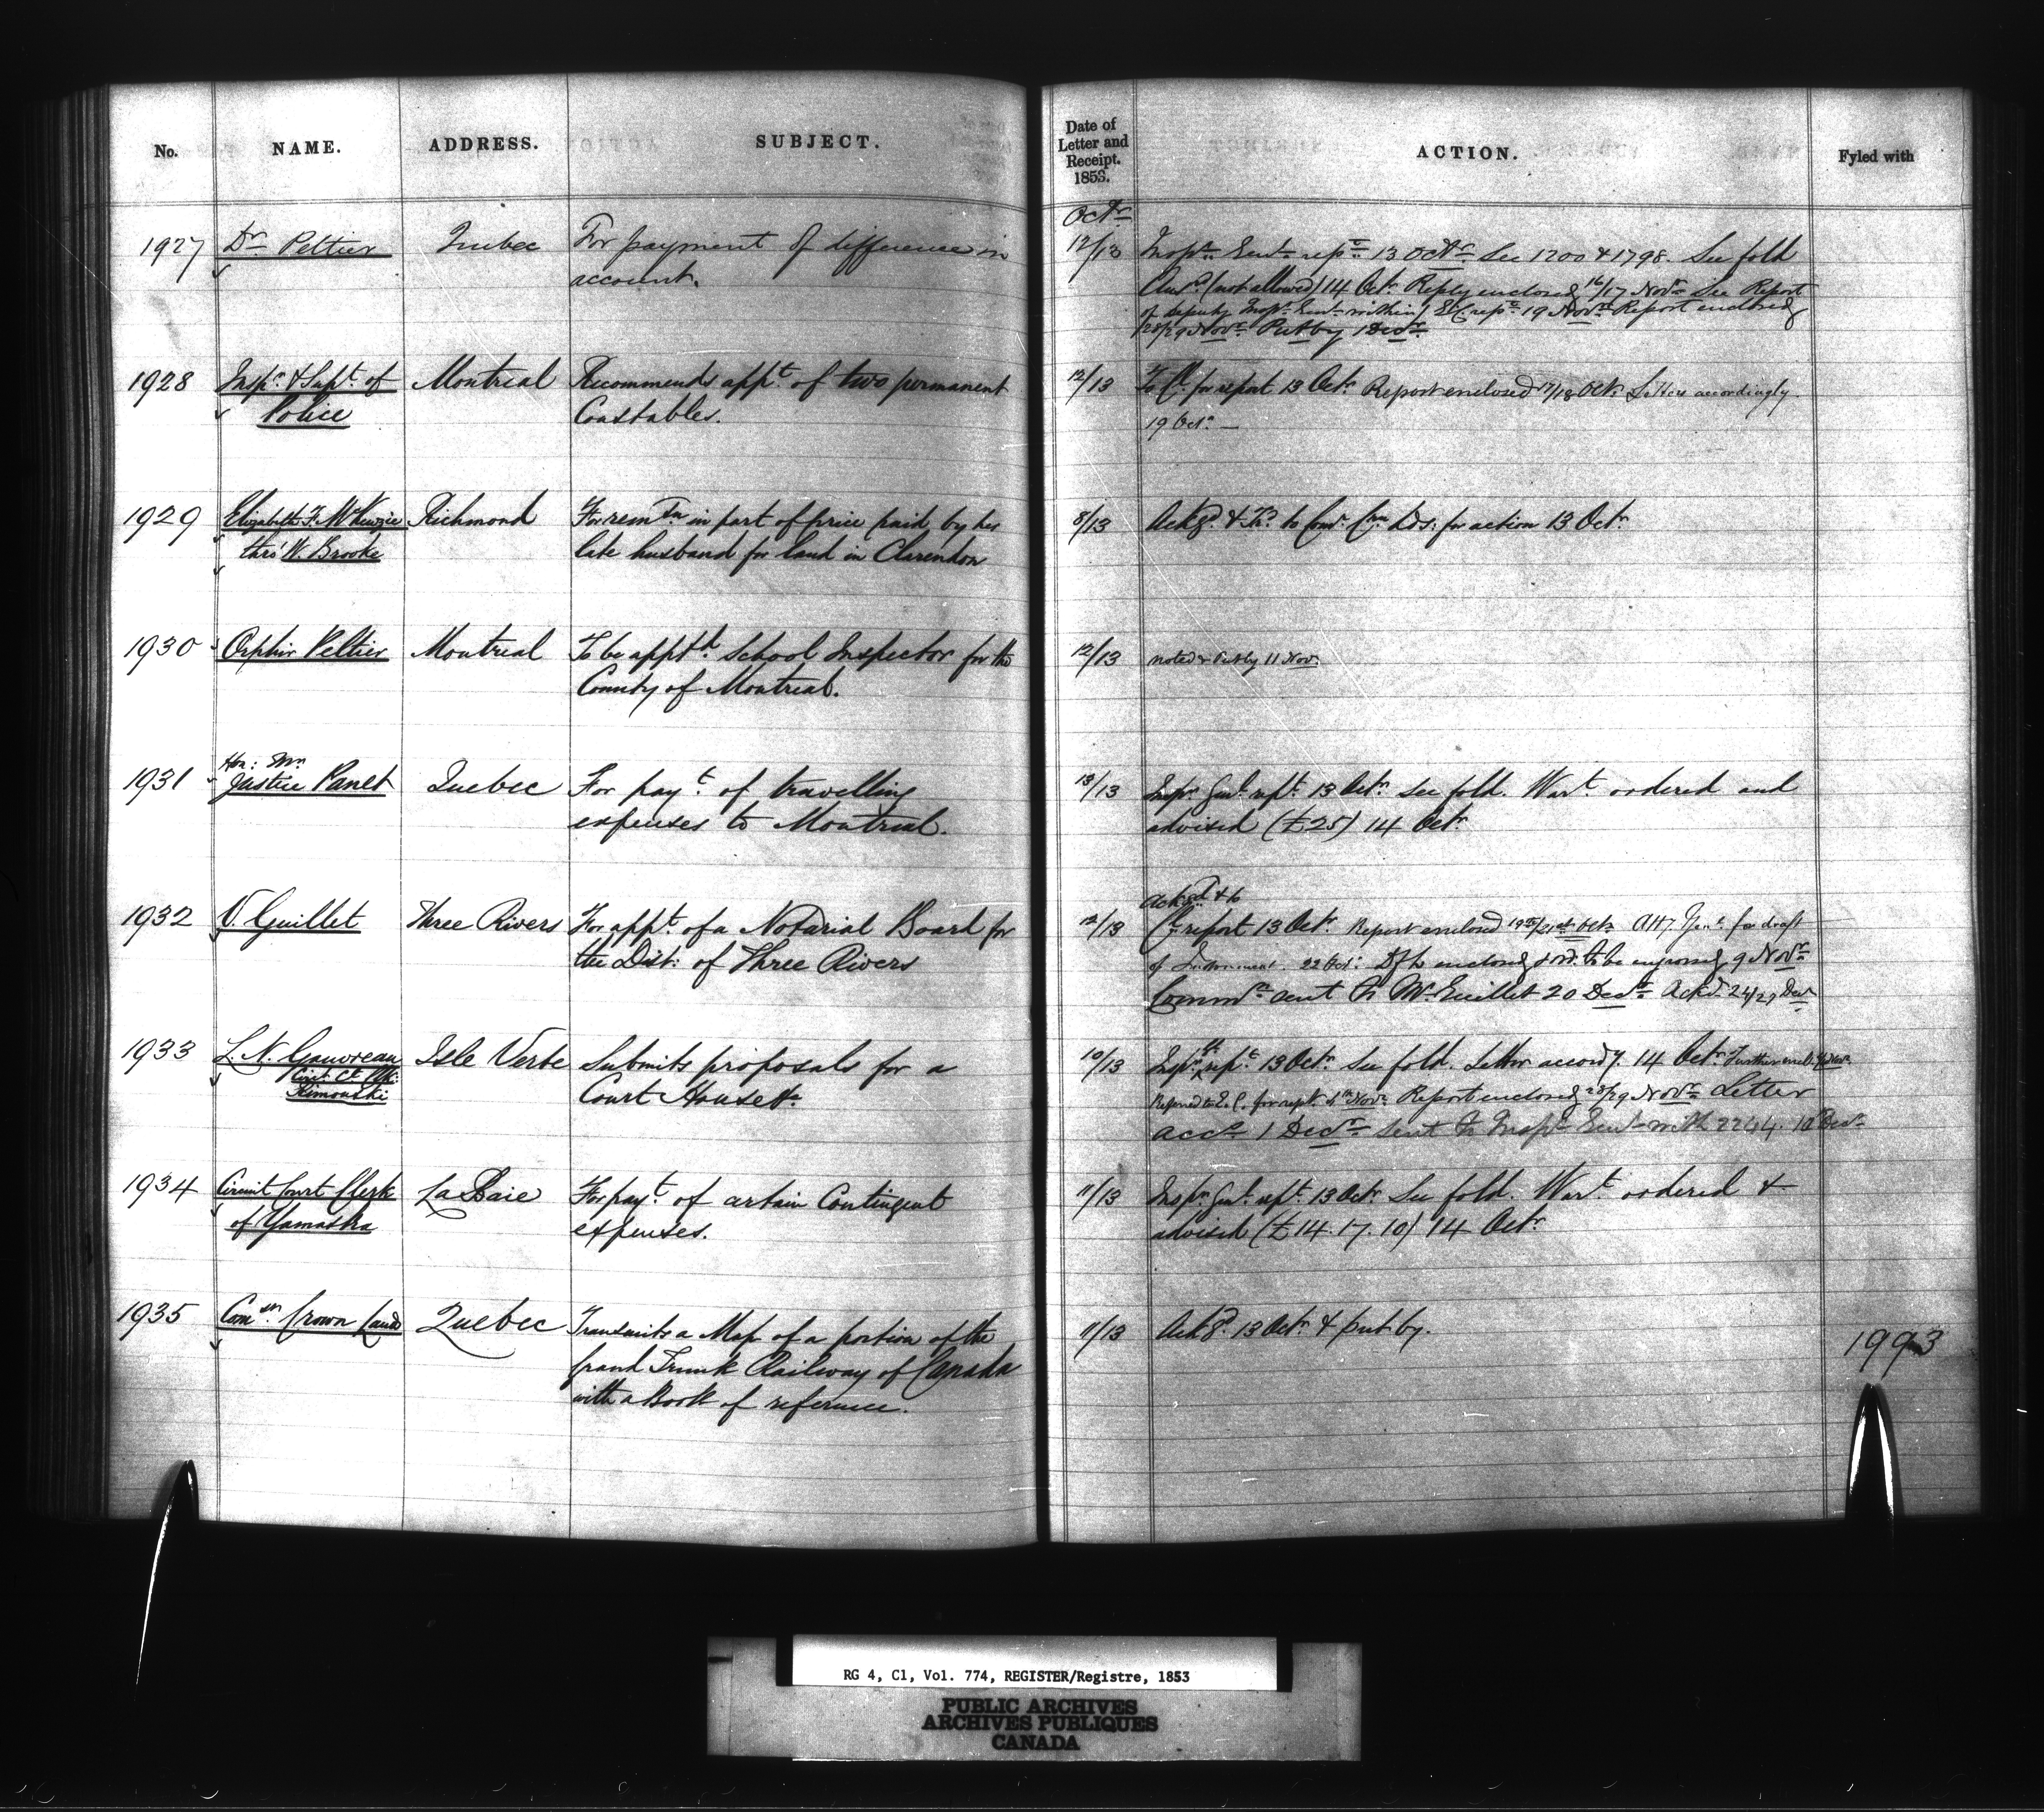 No. NAME. ADDRESS. SUBJECT.
1927 Dr Peltier Quebec For payment of difference in
account.
1928 Inspr & Supt. of Montreal Recommends appt. of two permanent
Police Constables.
1929 Elizabeth F. McKenzie Richmond For remn in part of price paid by her
thro' W. Brooke late husband for land in Clarendon
1930 Orphir Peltier Montreal To be apptd School Inspector for the
County of Montreal.
1931 Hon: Mr.
Justice Panet Quebec For payt. of travelling
expenses to Montreal.
1932 V. Guillet Three Rivers For appt. of a Notarial Board for
the Dist: of Three Rivers
1933 L. N. Gauvreau Isle Verte Submits proposals for a
Circt. Ct. Clk. Court House &c.
Rimouski
1934 Circuit Court Clerk La Baie For payt. of certain Contingent
of Yamaska expenses.
1935 Comr. Crown Lands Quebec Transmits a Map of a portion of the
Grand Trunk Railway of Canada
with a Book of reference.
Date of
Letter and
Receipt.
1853. ACTION. Fyled with
Octr
12/13 Inspr. Genl. rept. 13 Octr. See 1200 & 1798. See fold
Ansd. (not allowed) 14 Octr. Reply enclosed 16/17 Novr. See Report
of Deputy Inspr. Genl. within / rept. 19 Novr. Report enclosed
28/29 Novr. Put by 1 Decr.
12/13 for report 13 Octr. Report enclosed 17/18 Oct. Letters accordingly
19 Octr. —
8/13 Ackgd. & Trd. to Comr. Crn Lds: for action 13 Octr
12/13 noted & Put by 11 Nov.
13/13 Inspr. Genl. rept. 13 Octr. See fold. Wart. ordered and
advised (£25) 14 Octr.
Ackgd. & to
12/13 report 13 Octr. Report enclosed 19th/21st Octr. Atty. Genl. for draft
of Instrument. 22 Oct. Dft. enclosed & ord. to be engrossed 9 Novr.
Commn. sent to Mr. Guillet 20 Decr. Ackd. 24/27 Decr
10/13 Inspr. rept. 13 Octr. See fold. Letter accordy. 14 Octr. Further encl.
Referred to E. C. for rept. Novr. Report enclosed 28/29 Novr. Letter
accg. 1 Decr. Sent to Inspr. Genl. with 2244. Decr.
11/13 Inspr. Genl. rept. 13 Octr. See fold. Wart. ordered &
advised (£14.17.10) 14 Octr.
11/13 Ackgd. 13 Octr. & put by. 1993
RG 4, C1, Vol. 774, REGISTER/Registre, 1853
PUBLIC ARCHIVES
ARCHIVES PUBLIQUES
CANADA